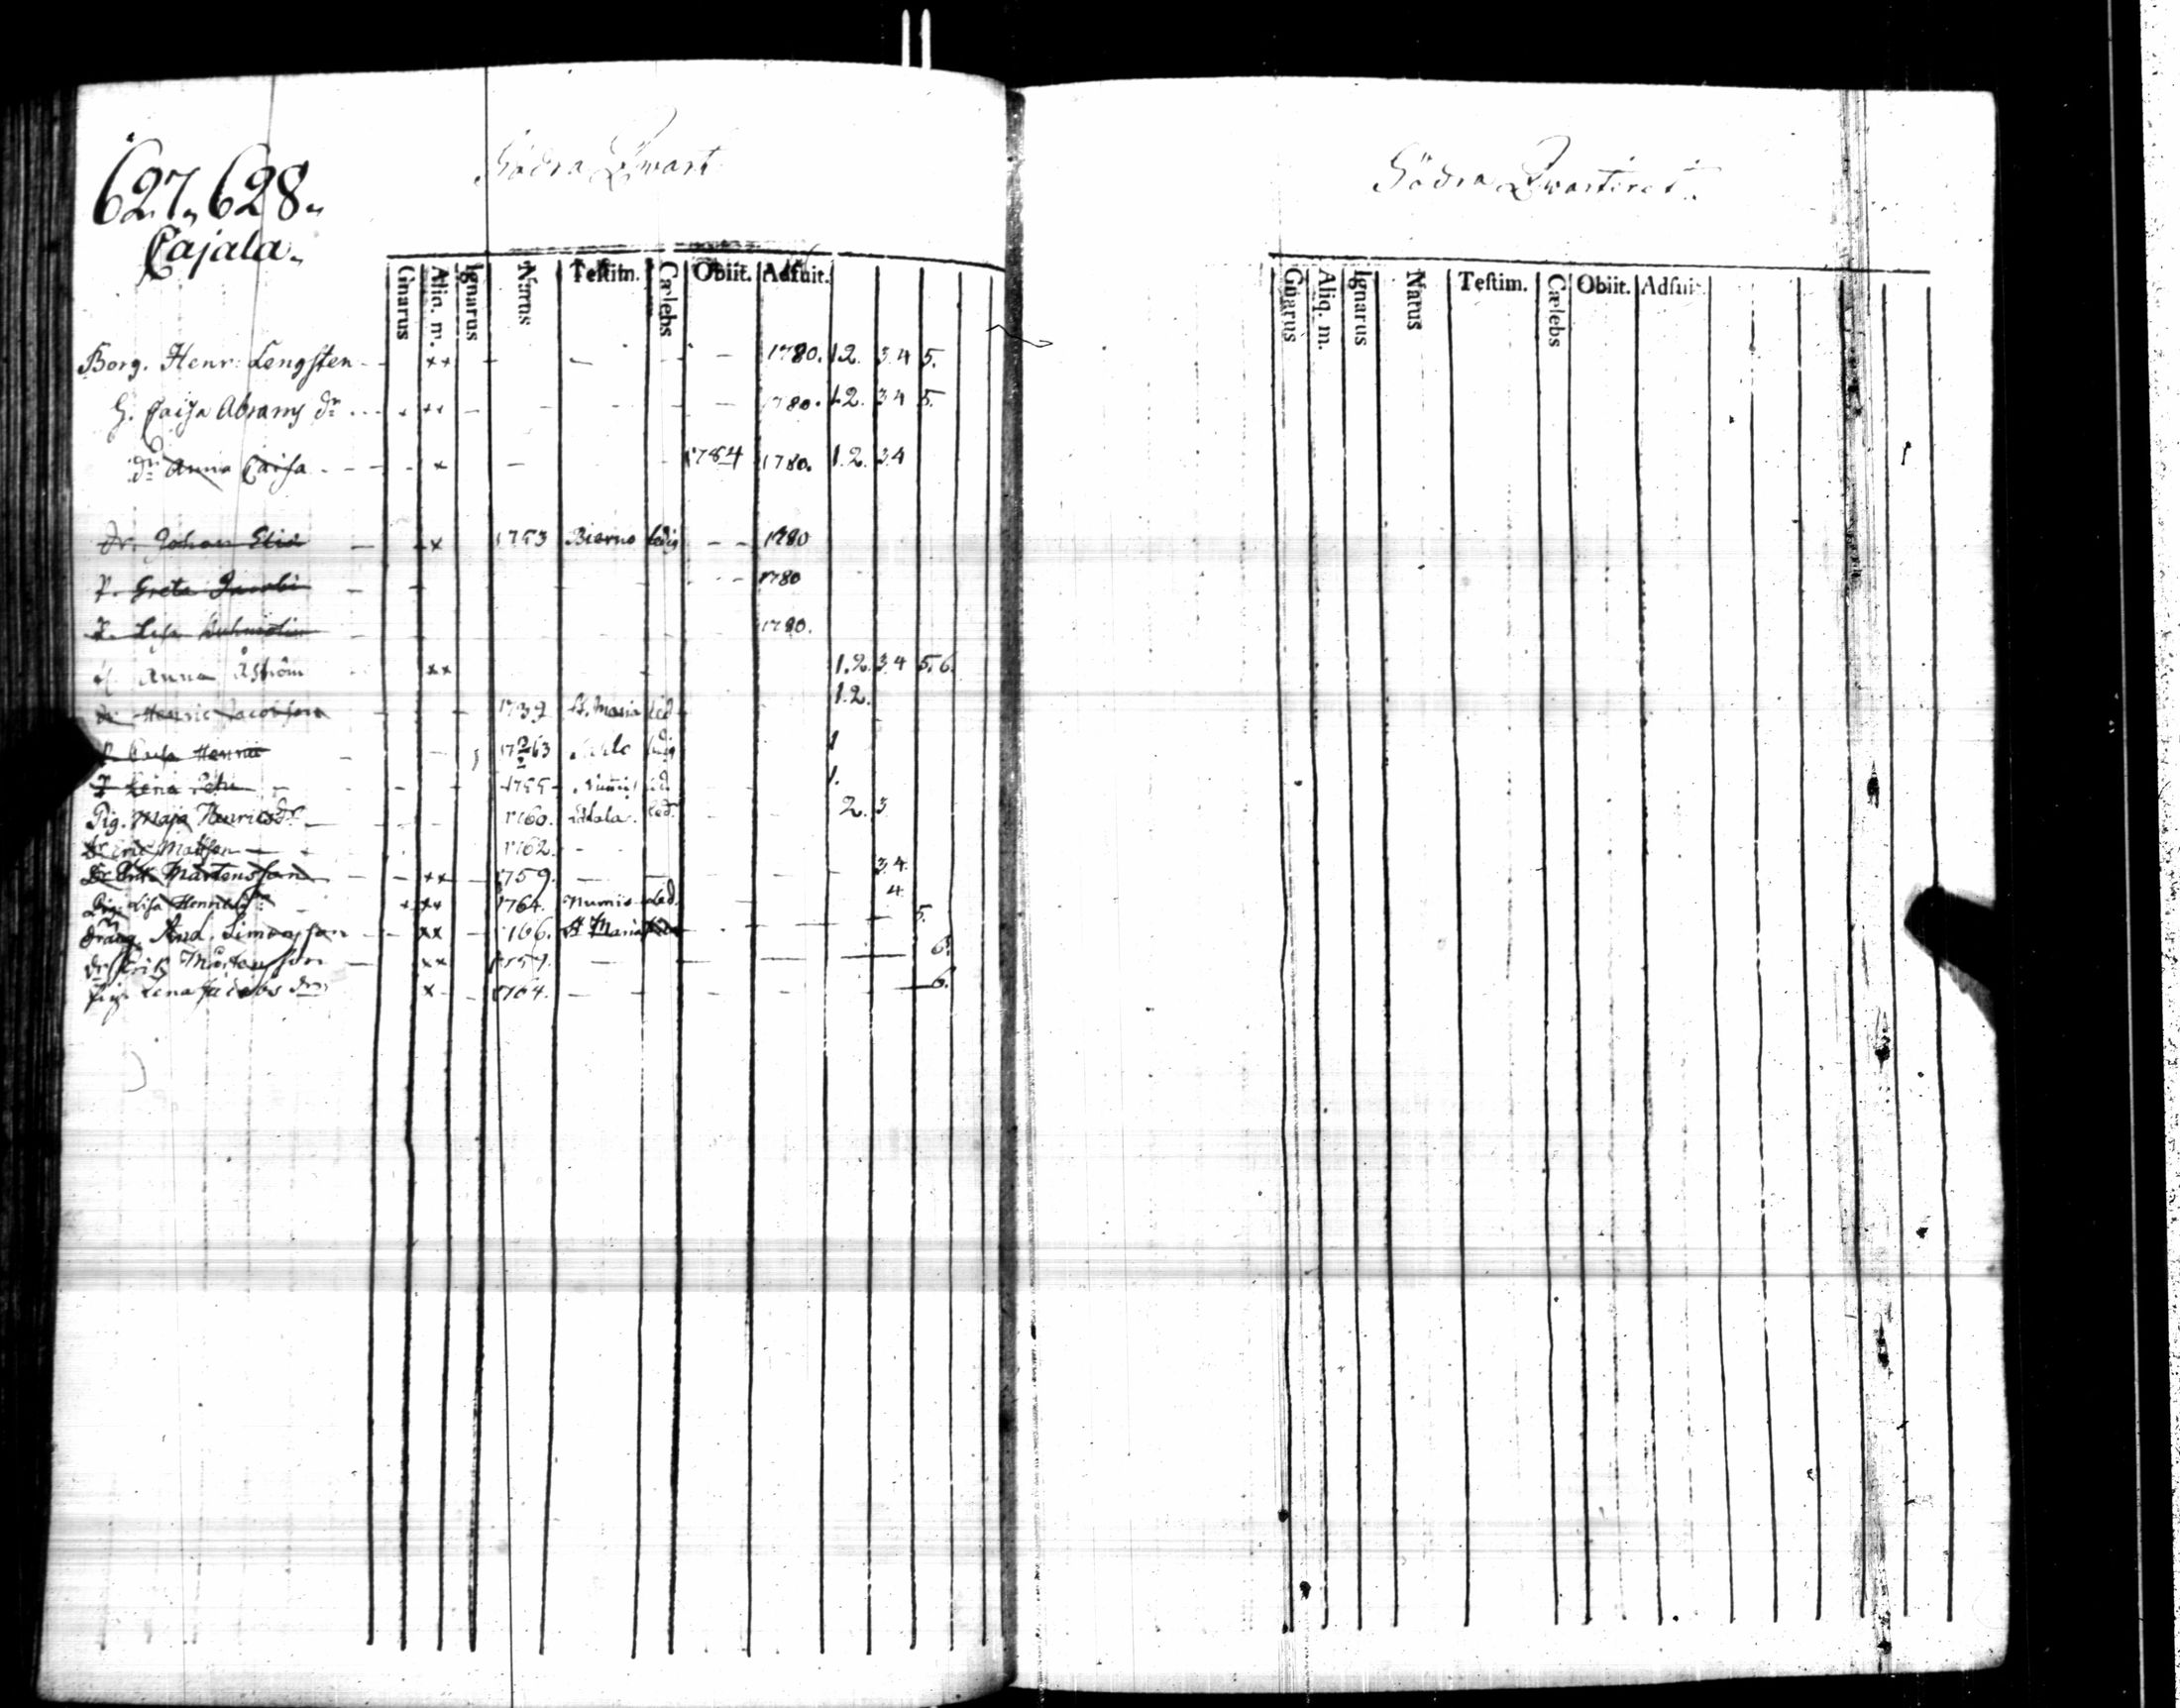 Södra Qwart
627, 628.
Cajala.
Gnarus Aliq. m. Ignarus Natus Testim. Cælebs Obiit. Adfuit.
Borg. Henr: Lengsten - - ×× - - - - - 1780. 1 2. 3 4 5.
H. Caisa Abrams dr ... - ×× - - - - - 1780. 1 2. 3 4 5.
dr Anna Caisa - - - × - - 1784 1780. 1. 2. 3 4
Dr. Johan Eliæ - × 1753 Bierno ledig - - 1780
P. Greta Jacobi - - - - 1780
P. Lisa - - 1780.
Anna Åström ×× 1. 2. 3 4 5. 6.
Dr Henric Jacobsson 1739 St. Maria led 1. 2.
P. Caisa Henrici 1763 1
P Lena Petri 1755 1.
Pig. Maja Henricsdr 1760. led. 2. 3
Dr Eric Matsson 1762. -
Dr Erik Mårtensson - - ×× 1759. - 3. 4.
Pig. Lisa Henricsdr ×× 1764. Numis Led. 4.
Dräng And. Simonsson - ×× 1766. St Maria 5.
dr Erik Mårtensson - ×× 1759. - 6.
Pig. Lena Jacobs dr × 1764. - 6.
Södra Qwartiret.
Gnarus Aliq. m. Ignarus Natus Testim. Cælebs Obiit. Adfuit.